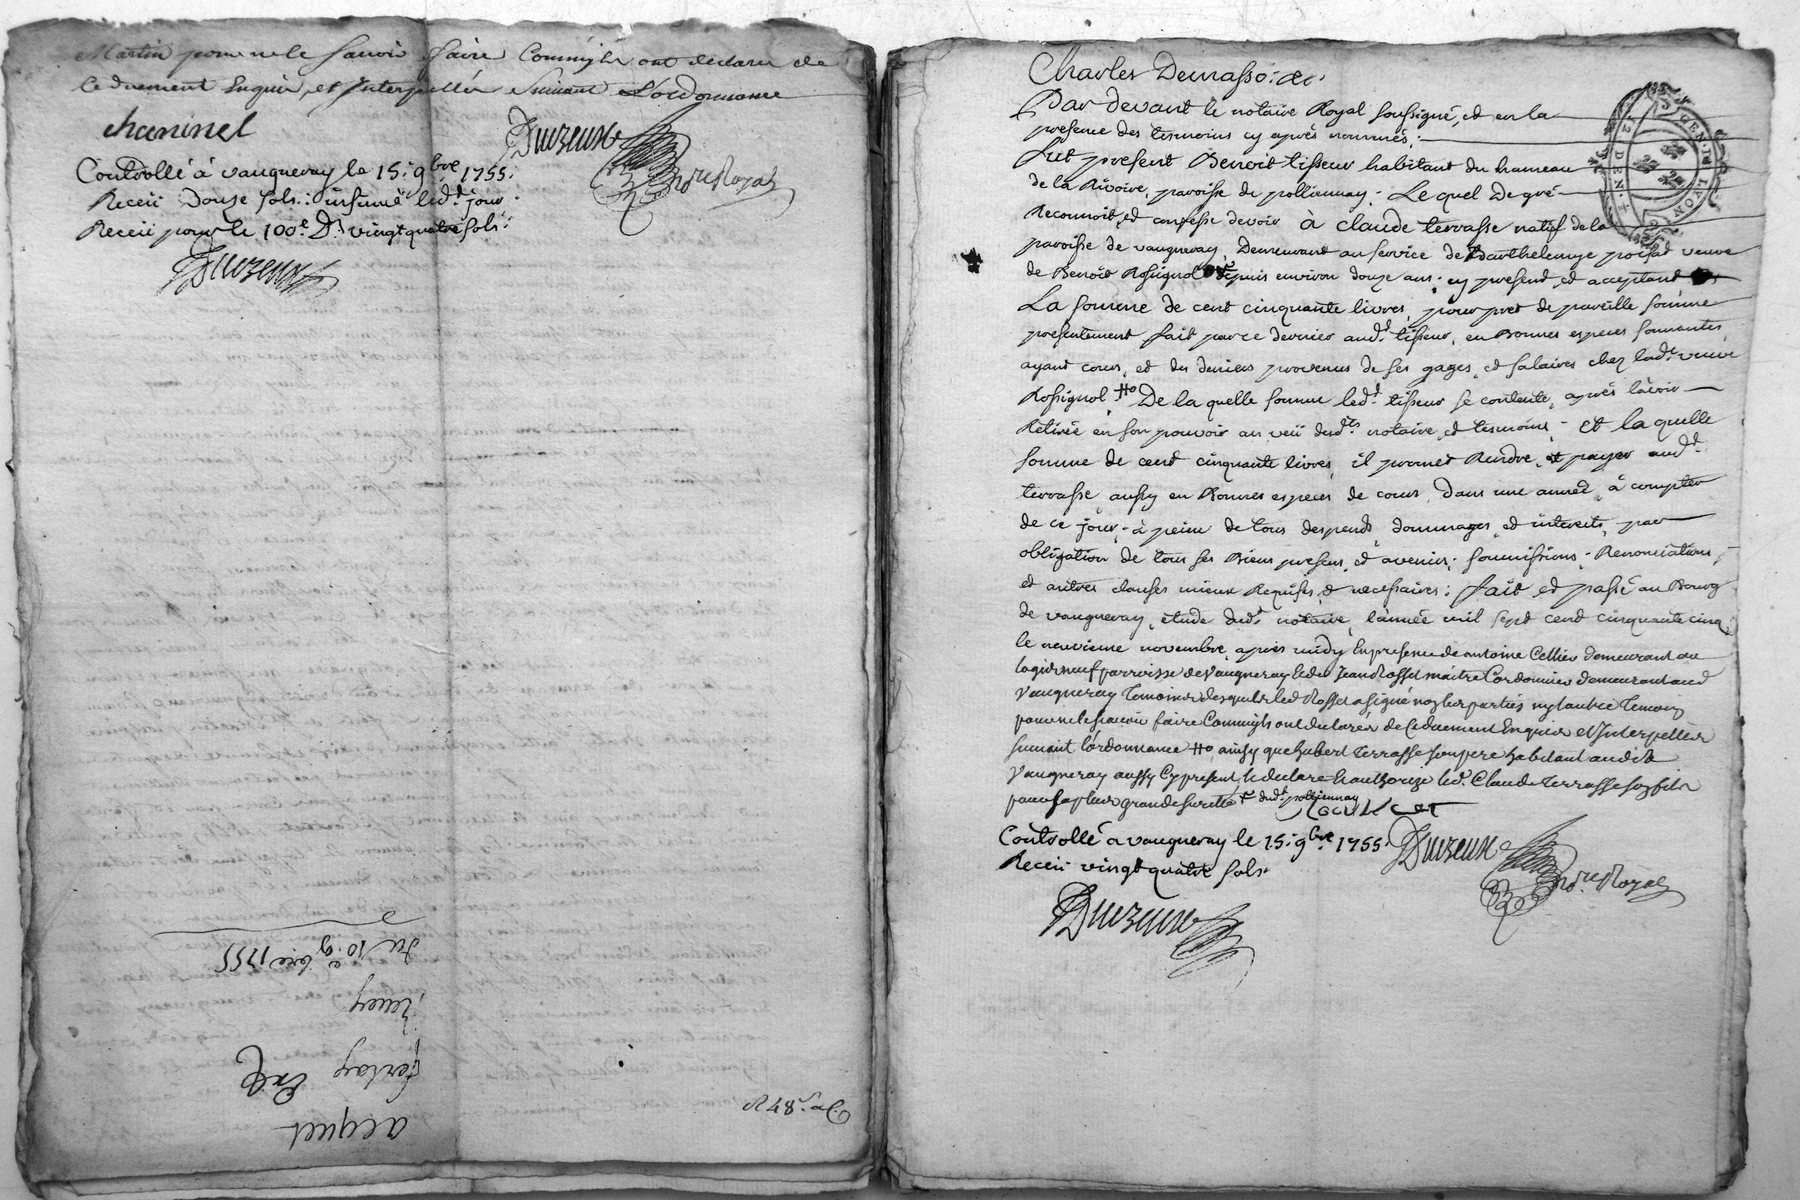 Martin pour ne le savoir faire Commils ont declaré de
ce duement Enquis, et Interpellés Suivant L'ordonnance
chaninel
Duvzeux
no.re Royal
Controllé à vaugneray le 15: 9bre 1755:
Receü Douze sols: insinué led.t jour
Receü pour le 100.e D.r vingt quatre sols:
Duvzeux
acquet
ferlay
du 10.e 9bre 1755
Charles Demasso: &c:
Par devant le notaire Royal soussigné, et en la
presence des temoins cy aprés nommés:
fut present Benoit tisseur habitant du hameau
de la Rivoire, paroisse de pollionnay: Le quel De gré
Reconnoit, et confesse devoir à claude terrasse natif de la
paroisse de vaugneray, Demeurant au service de Barthelemye poisat veuve
de Benoit Rossignol depuis environ douze ans: cy present, et acceptant
La somme de cent cinquante livres, pour pret de pareille somme
presentement fait par ce dernier aud.t tisseur, en Bonnes especes sonnantes
ayant cours, et des deniers provenus de ses gages, et salaires chez lad.e veuve
Rossignol De la quelle somme led.t tisseur se contente, aprés l'avoir
Retirée en son pouvoir au veü dud.ts notaire, et temoins: Et la quelle
somme de cent cinquante livres, il promet Rendre, et payer aud.t
terrasse, aussy en Bonnes especes de cours, Dans une année, à compter
de ce jour: à peine de tous despends, dommages, et interets, par
obligation de tous ses Biens presens, et avenir: soumissions: Renonciations,
et autres clauses mieux Requises, & necessaires: fait, et passé au Bourg
de vaugneray, etude dud.t notaire, l'année mil sept cent cinquante cinq,
le neuvieme novembre, aprés midy En presence de antoine Cellier demeurant au
logis neuf parroisse de Vaugneray & de Jean Rosset maitre Cordonnier demeurant aud
Vaugneray Temoins desquels led Rosset a signé non les parties ny l'autre Temoin
pour ne le savoir faire Commils ont declarés de Ce duement Enquis et Interpellés
suivant l'ordonnance ainsy que hubert Terrasse son pere habitant audit
Vaugneray aussy Cy present & declare & authorize led.t Claude Terrasse son fils
pour sa plus grande suretté dud.t pollionnay
Rosset
Controllé a vaugneray le 15: 9bre 1755: Duvzeux
no.re Royal
Receü vingt quatre sols.
Duvzeux